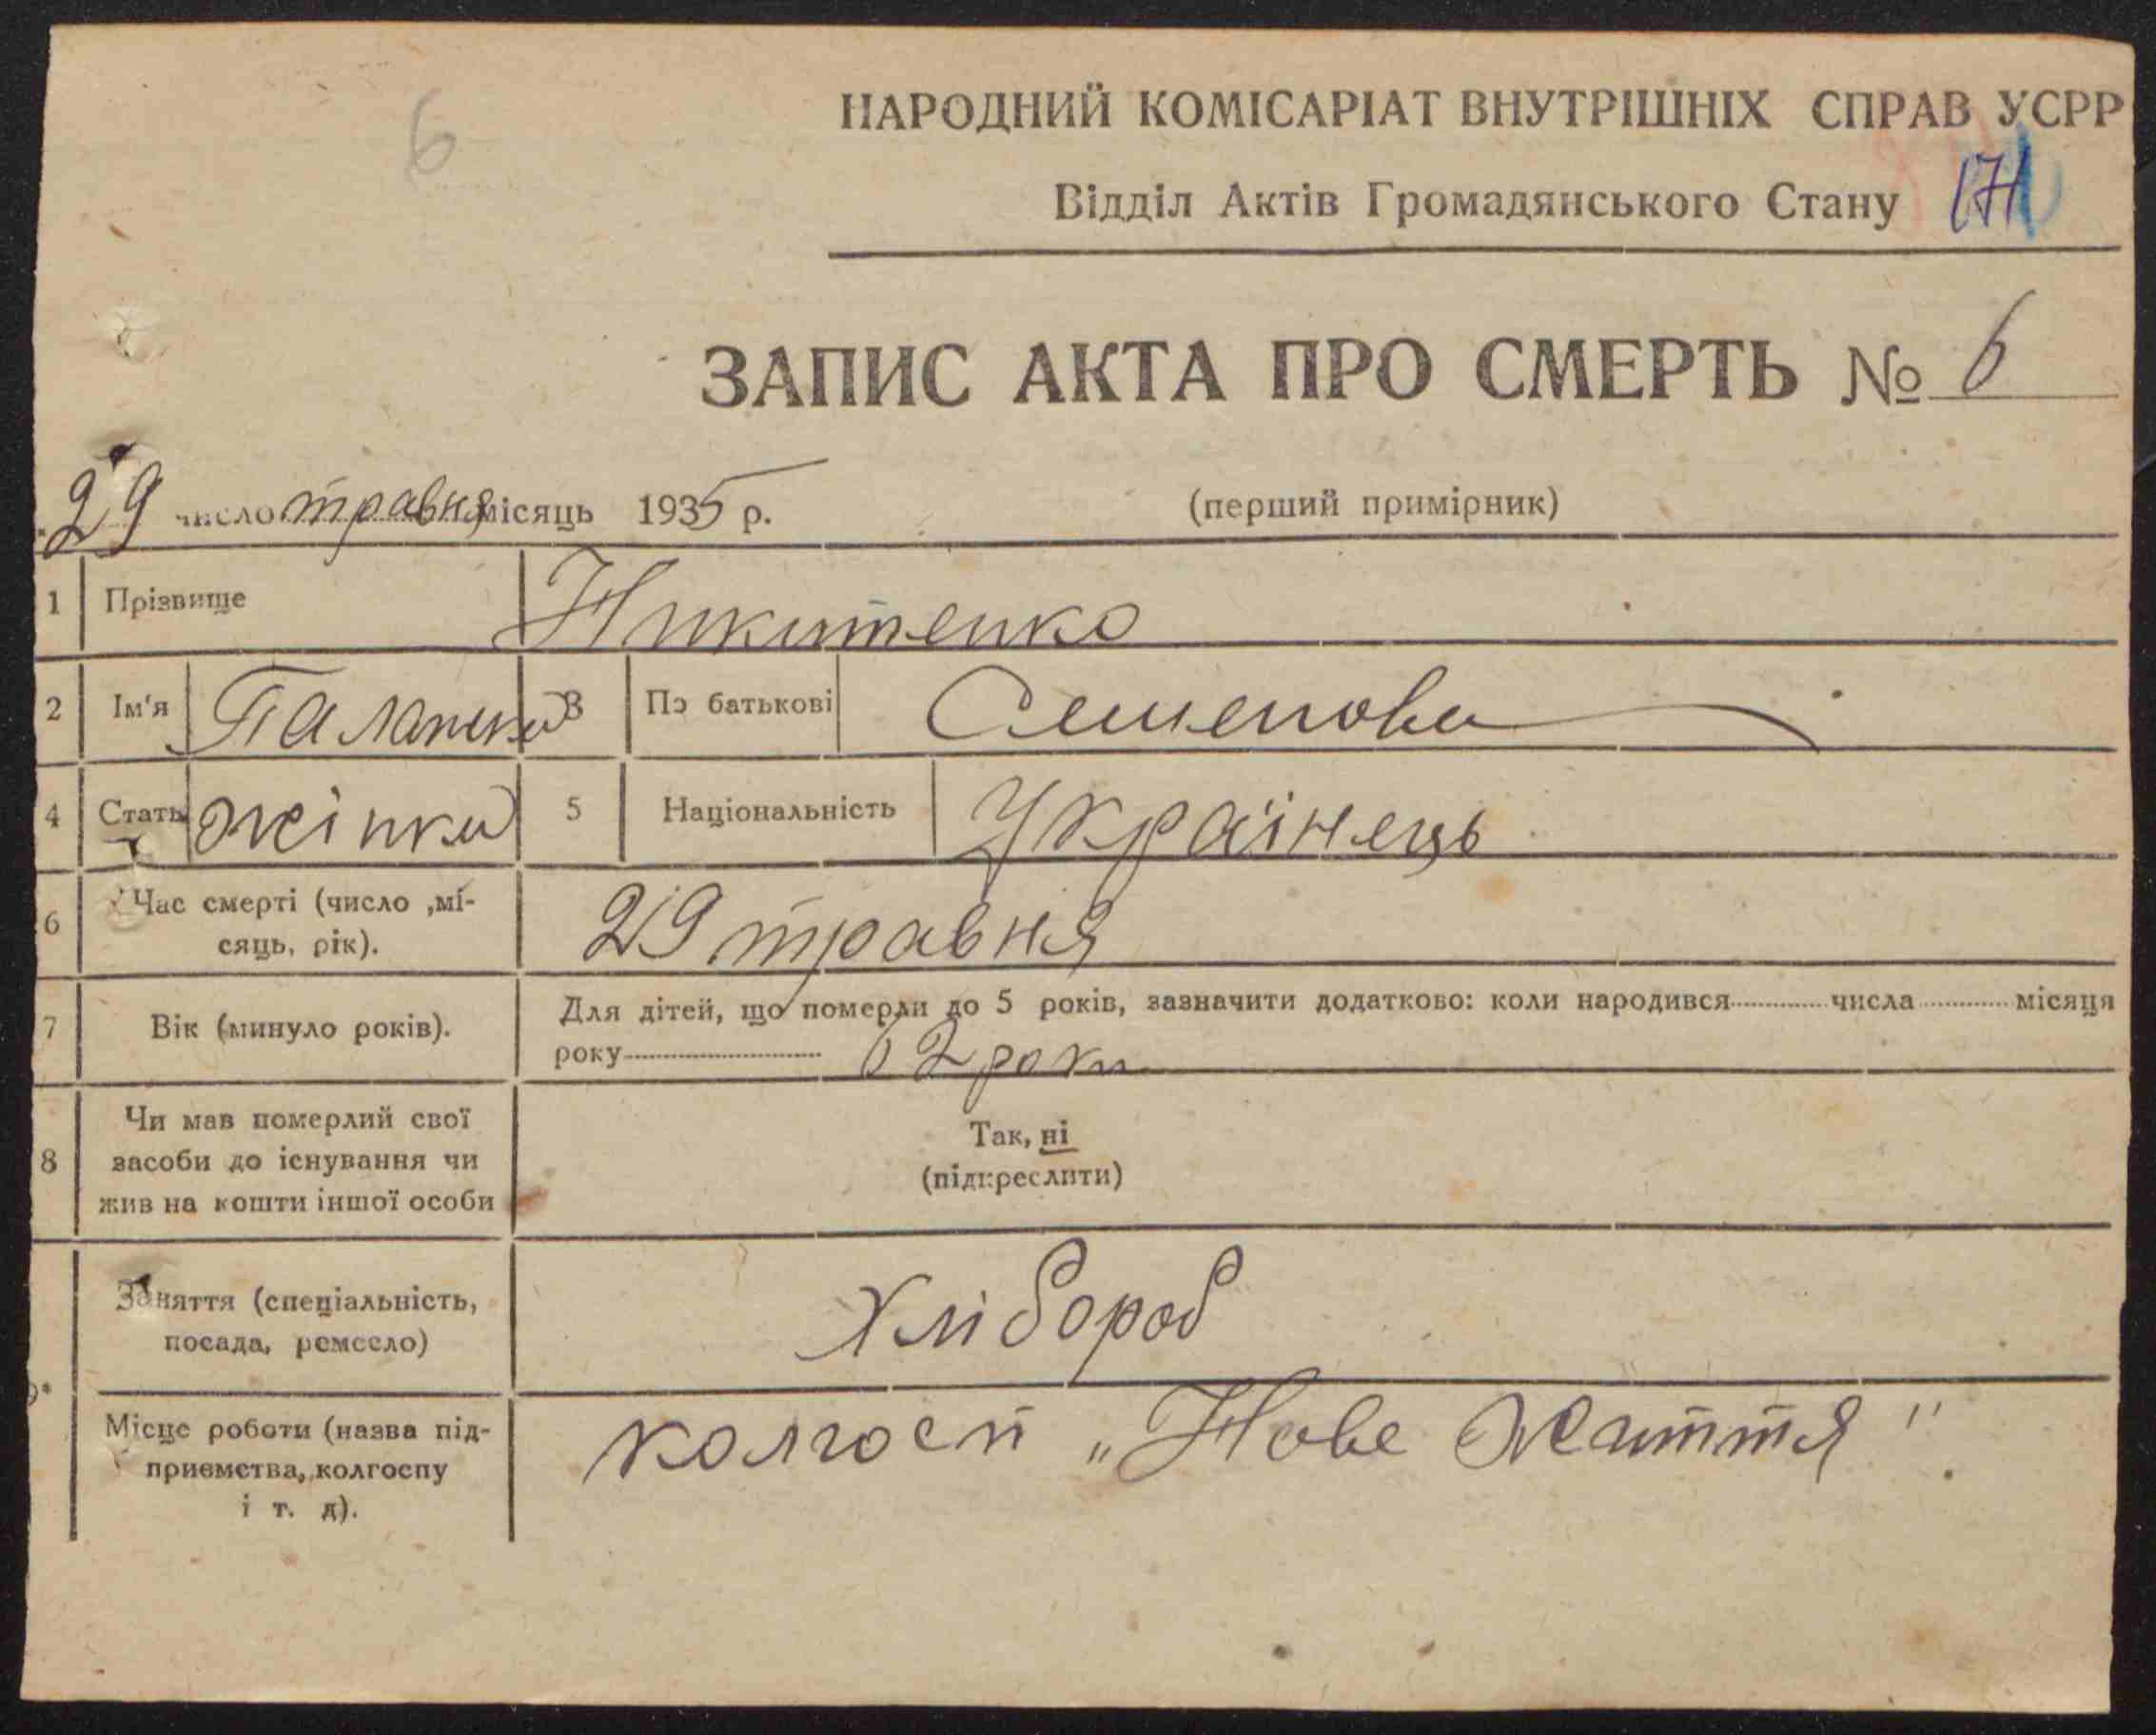 6
НАРОДНИЙ КОМІСАРІАТ ВНУТРІШНІХ СПРАВ УСРР
Відділ Актів Громадянського Стану
ЗАПИС АКТА ПРО СМЕРТЬ № 6
29 число травня місяць 1935 р. (перший примірник)
1 Прізвище Никитенко
2 Ім'я 3 По батькові Семенова
4 Стать жінка 5 Національність Українець
6 Час смерті (число ,мі-
сяць, рік). 29 травня
7 Вік (минуло років). Для дітей, що померли до 5 років, зазначити додатково: коли народився числа місяця
року 62 роки
8 Чи мав померлий свої
засоби до існування чи
жив на кошти іншої особи
Так, ні
(підкреслити)
Заняття (спеціальність,
посада, ремесло) Хлібороб
Місце роботи (назва під-
приємства, колгоспу
і т. д). колгосп „Нове життя"